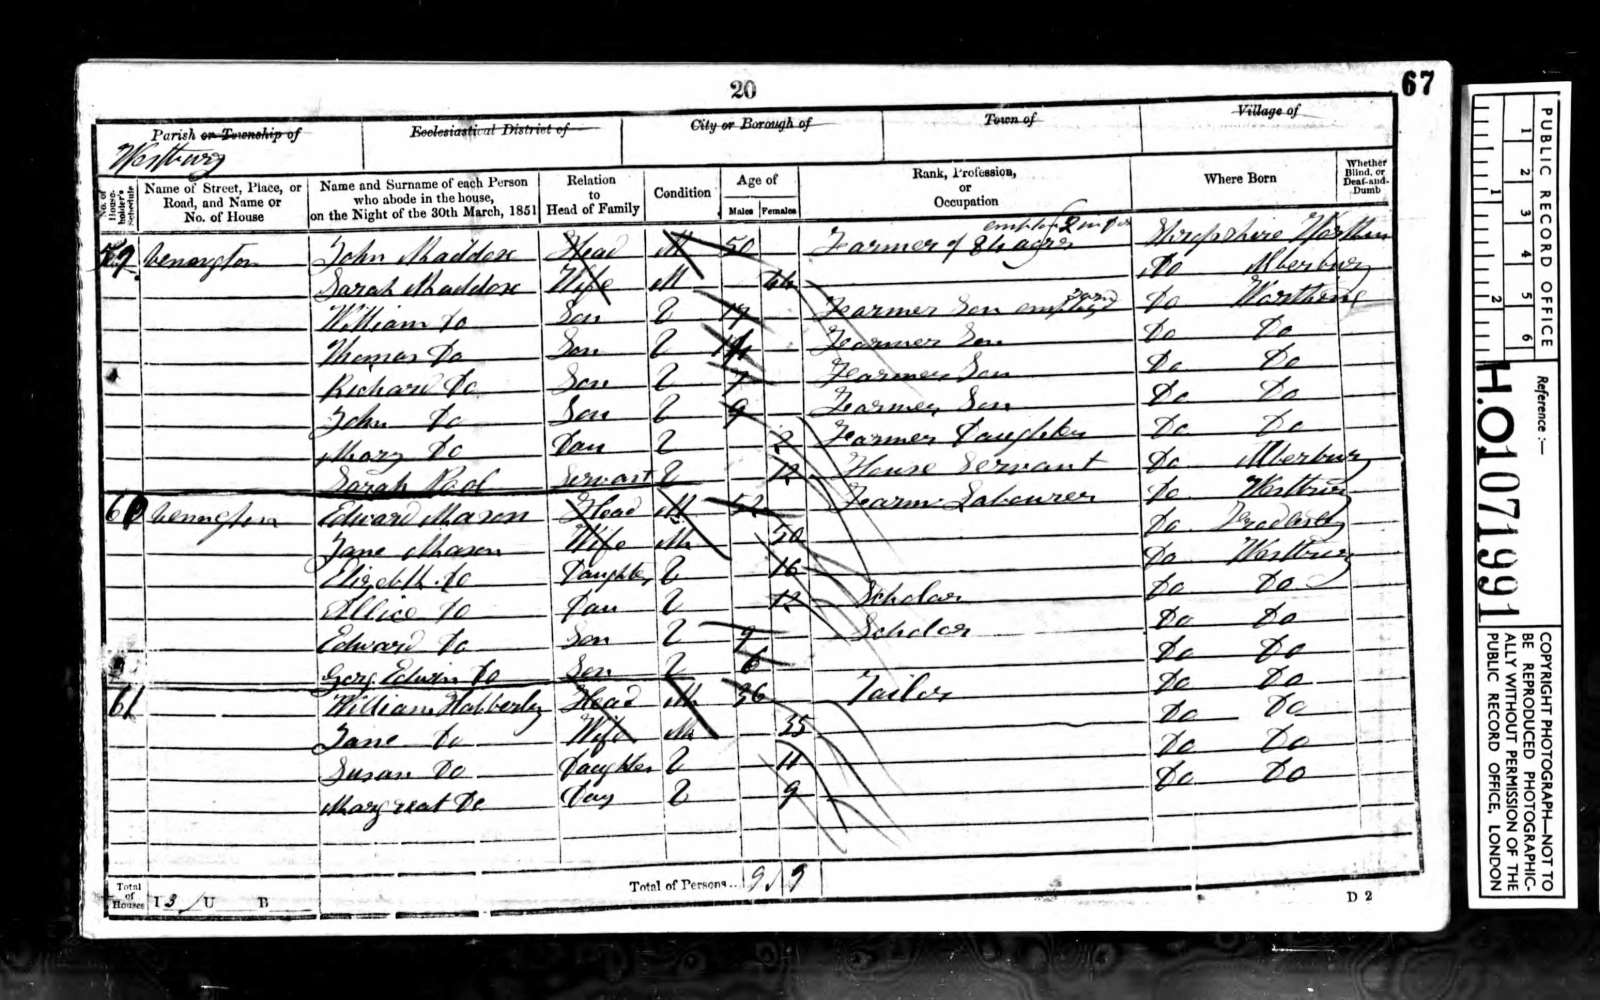 67
20
Parish or Township of
Ecclesiastical District of
City or Borough of
Town of
Village of
Westbury
No. of House-holder's Schedule
Name of Street, Place, or Road, and Name or No. of House
Name and Surname of each Person who abode in the house, on the Night of the 30th March, 1851
Relation to Head of Family
Condition
Age of
Males Females
Rank, Profession, or Occupation
Where Born
Whether Blind, or Deaf-and-Dumb
59 John Maddox Head M 50 Farmer of acres Shropshire Worthen
Sarah Maddox Wife M 44 Do Alberbury
William Do Son 17 Farmer Son Do Worthen
Thomas Do Son 14 Farmer Son Do Do
Richard Do Son 7 Farmer Son Do Do
John Do Son 9 Farmer Son Do Do
Mary Do Dau 2 Farmer Daughter Do Do
Sarah Servant 12 House Servant Do Alberbury
60 Edward Mason Head M 52 Farm Labourer Do Westbury
Jane Mason Wife M 50 Do
Elizebth Do Daughter 16 Do Westbury
Allice Do Dau 12 Scholar Do Do
Edward Do Son 9 Scholar Do Do
Gorg Edwin Do Son 6 Do Do
61 William Habberley Head M 36 Tailor Do Do
Jane Do Wife M 35 Do Do
Susan Do Daughter 11 Do Do
Margreat Do Dau 9 Do Do
Total of Houses I 3 U B
Total of Persons... 9 9
D 2
PUBLIC RECORD OFFICE
1 2 3 4 5 6
1 2
Reference :—
H.O. 107 1991
COPYRIGHT PHOTOGRAPH—NOT TO
BE REPRODUCED PHOTOGRAPHIC-
ALLY WITHOUT PERMISSION OF THE
PUBLIC RECORD OFFICE, LONDON